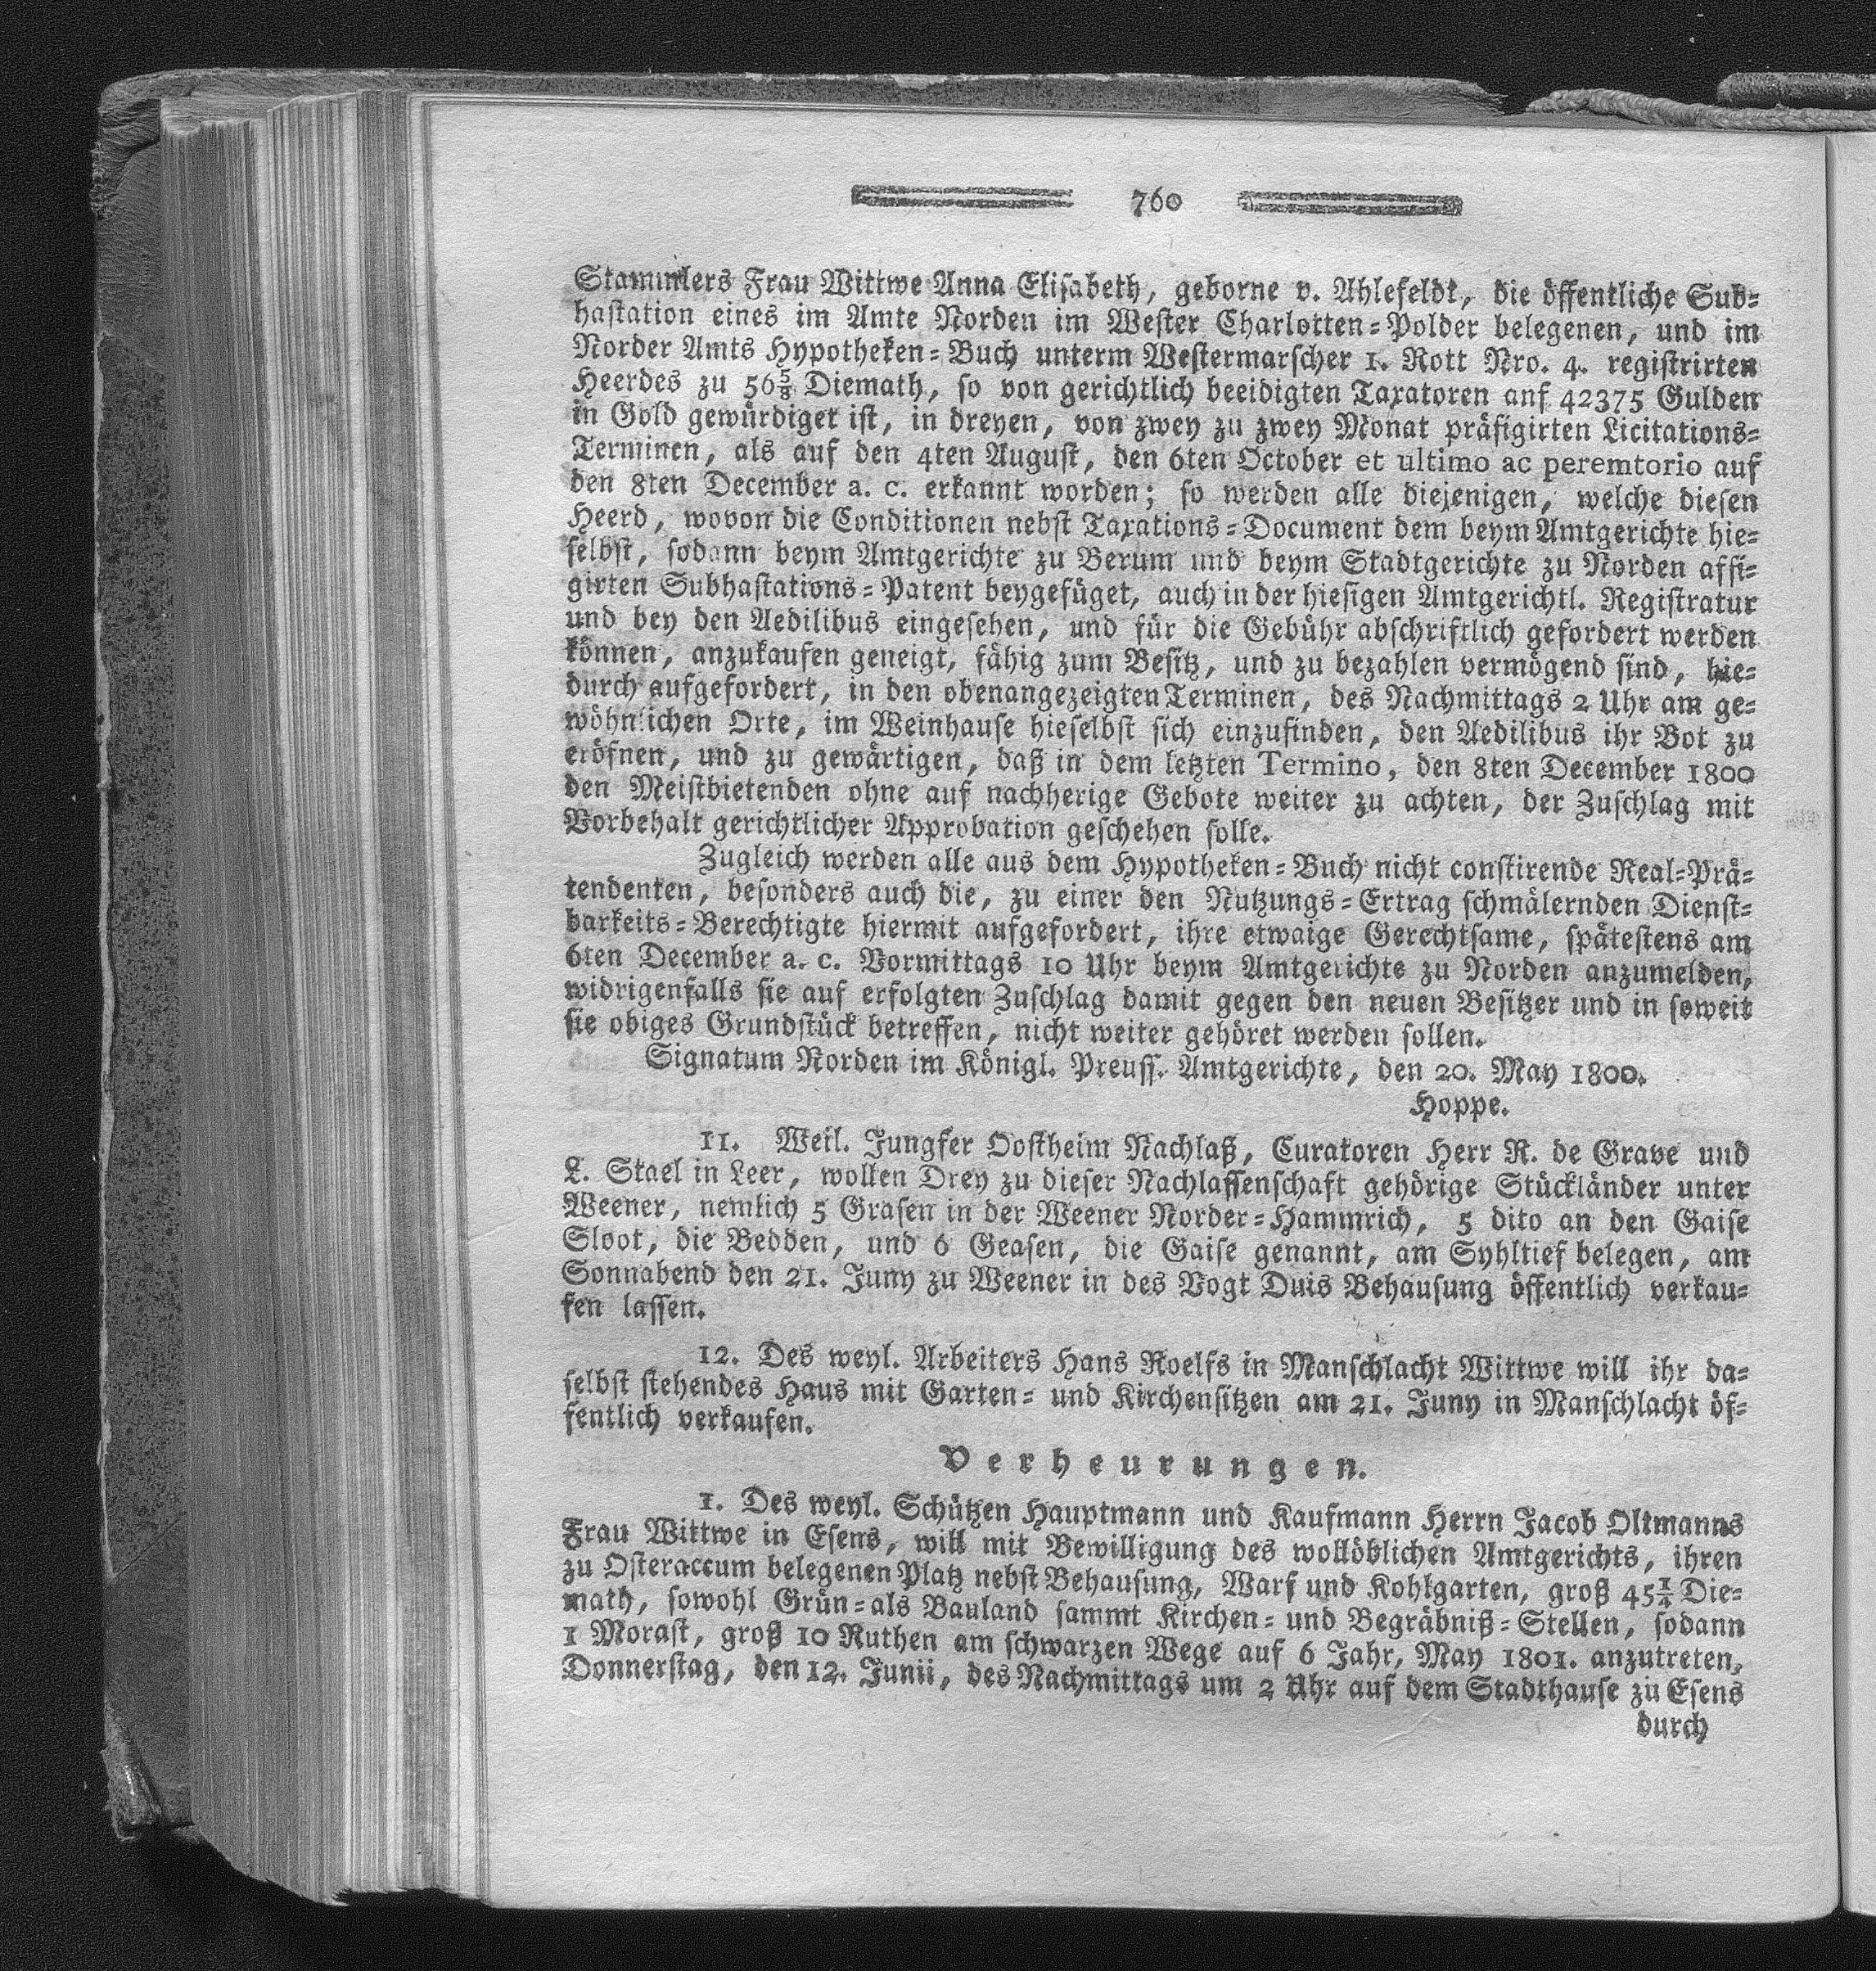 760
Stammlers Frau Wittwe Anna Elisabeth, geborne v. Ahlefeldt, die öffentliche Sub-
hastation eines im Amte Norden im Wester Charlotten-Polder belegenen, und im
Norder Amts Hypotheken-Buch unterm Westermarscher 1. Rott Nro. 4. registrirten
Heerdes zu 56 5/8 Diemath, so von gerichtlich beeidigten Taxatoren anf 42375 Gulden
in Gold gewürdiget ist, in dreyen, von zwey zu zwey Monat präfigirten Licitations-
Terminen, als auf den 4ten August, den 6ten October et ultimo ac peremtorio auf
den 8ten December a. c. erkannt worden; so werden alle diejenigen, welche diesen
Heerd, wovon die Conditionen nebst Taxations-Document dem beym Amtgerichte hie-
selbst, sodann beym Amtgerichte zu Berum und beym Stadtgerichte zu Norden affi-
girten Subhastations-Patent beygefüget, auch in der hiesigen Amtgerichtl. Registratur
und bey den Aedilibus eingesehen, und für die Gebühr abschriftlich gefordert werden
können, anzukaufen geneigt, fähig zum Besitz, und zu bezahlen vermögend sind, hie-
durch aufgefordert, in den obenangezeigten Terminen, des Nachmittags 2 Uhr am ge-
wöhnlichen Orte, im Weinhause hieselbst sich einzufinden, den Aedilibus ihr Bot zu
eröfnen, und zu gewärtigen, daß in dem letzten Termino, den 8ten December 1800
den Meistbietenden ohne auf nachherige Gebote weiter zu achten, der Zuschlag mit
Vorbehalt gerichtlicher Approbation geschehen solle.
Zugleich werden alle aus dem Hypotheken-Buch nicht constirende Real-Prä-
tendenten, besonders auch die, zu einer den Nutzungs-Ertrag schmälernden Dienst-
barkeits-Berechtigte hiermit aufgefordert, ihre etwaige Gerechtsame, spätestens am
6ten December a. c. Vormittags 10 Uhr beym Amtgerichte zu Norden anzumelden,
widrigenfalls sie auf erfolgten Zuschlag damit gegen den neuen Besitzer und in soweit
sie obiges Grundstück betreffen, nicht weiter gehöret werden sollen.
Signatum Norden im Königl. Preuss. Amtgerichte, den 20. May 1800.
Hoppe.
11. Weil. Jungfer Oostheim Nachlaß, Curatoren Herr R. de Grave und
L. Stael in Leer, wollen Drey zu dieser Nachlassenschaft gehörige Stückländer unter
Weener, nemlich 5 Grasen in der Weener Norder-Hammrich, 5 dito an den Gaise
Sloot, die Bedden, und 6 Geasen, die Gaise genannt, am Syhltief belegen, am
Sonnabend den 21. Juny zu Weener in des Vogt Duis Behausung öffentlich verkau-
fen lassen.
12. Des weyl. Arbeiters Hans Roelfs in Manschlacht Wittwe will ihr da-
selbst stehendes Haus mit Garten- und Kirchensitzen am 21. Juny in Manschlacht öf-
fentlich verkaufen.
Verheurungen.
1. Des weyl. Schützen Hauptmann und Kaufmann Herrn Jacob Oltmanns
Frau Wittwe in Esens, will mit Bewilligung des wollöblichen Amtgerichts, ihren
zu Osteraccum belegenen Platz nebst Behausung, Warf und Kohlgarten, groß 45 1/4 Die-
math, sowohl Grün-als Bauland sammt Kirchen- und Begräbniß-Stellen, sodann
1 Morast, groß 10 Ruthen am schwarzen Wege auf 6 Jahr, May 1801. anzutreten,
Donnerstag, den 12. Junii, des Nachmittags um 2 Uhr auf dem Stadthause zu Esens
durch